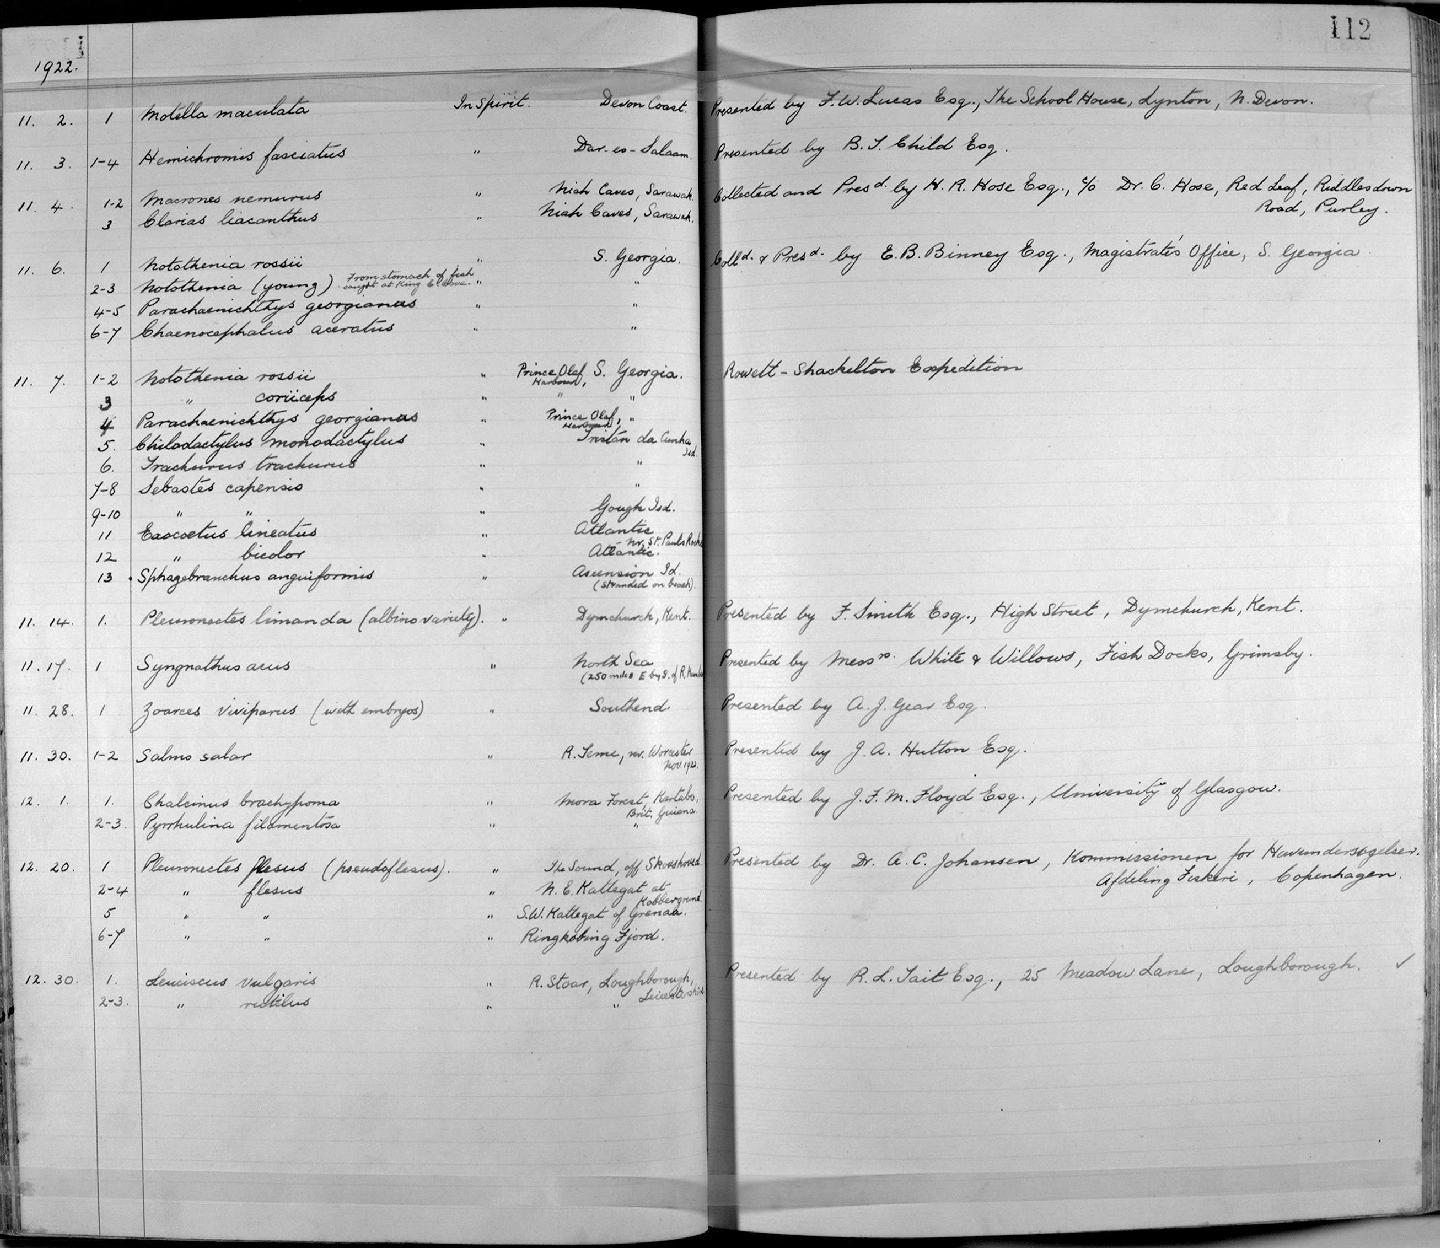 112
1922.
11. 2. 1 Motella maculata In Spirit. Devon Coast. Presented by F. W. Lucas Esq., The School House, Lynton, N. Devon.
11. 3. 1-4 Hemichromis fasciatus " Dar-es-Salaam. Presented by B. T. Child Esq.
11. 4. 1-2 Macrones nemurus " Niah Caves, Sarawak. Collected and Presd. by H. R. Hose Esq., c/o Dr. C. Hose, Red Leaf, Riddlesdown
Road, Purley.
3 Clarias liacanthus " Niah Caves, Sarawak.
11. 6. 1 Notothenia rossii " S. Georgia. Colld. & Presd. by E. B. Binney Esq., Magistrate's Office, S. Georgia.
2-3 Notothenia (young) From stomach of fish
caught at King E. Cove. " "
4-5 Parachaenichthys georgianus " "
6-7 Chaenocephalus aceratus " "
11. 7. 1-2 Notothenia rossii " Prince Olaf Harbour, S. Georgia. Rowett-Shackelton Expedition
3 " coriiceps " " "
4 Parachaenichthys georgianus " Prince Olaf Harbour, "
5. Chilodactylus monodactylus " Tristan da Cunha Isd.
6. Trachurus trachurus " "
7-8 Sebastes capensis " "
9-10 " " Gough Isd.
11 Exocoetus lineatus " Atlantic
nr. St. Pauls Rocks
12 " bicolor " Atlantic.
13 Sphagebranchus anguiformis " Ascension Id.
(Stranded on beach).
11. 14. 1. Pleuronectes limanda (albino variety). " Dymchurch, Kent. Presented by F. Smith Esq., High Street, Dymchurch, Kent.
11. 17. 1 Syngnathus acus " North Sea Presented by Messrs. White & Willows, Fish Docks, Grimsby.
(250 miles E by S. of R. Humber
11. 28. 1 Zoarces viviparus (with embryos) " Southend Presented by A. J. Gear Esq.
11. 30. 1-2 Salmo salar " R. Teme, nr. Worcester Presented by J. A. Hutton Esq.
Nov. 1922.
12. 1. 1. Chalcinus brachypoma " Mora Forest, Kartabo, Presented by J. F. M. Floyd Esq., University of Glasgow.
Brit. Guiana.
2-3. Pyrrhulina filamentosa " "
12. 20. 1 Pleuronectes flesus (pseudoflesus). " The Sound, off Skovshoved Presented by Dr. A. C. Johansen, Kommissionen for Havundersøgelser.
Afdeling Fiskeri, Copenhagen.
2-4 " flesus " N. E. Kattegat at
Kobbergrund.
5 " " " S. W. Kattegat of Grenaa.
6-7 " " " Ringkobing Fjord.
12. 30. 1. Leuciscus vulgaris " R. Stoar, Loughborough, Presented by R. L. Tait Esq., 25 Meadow Lane, Loughborough. ✓
Leicestershire
2-3. " rutilus " "